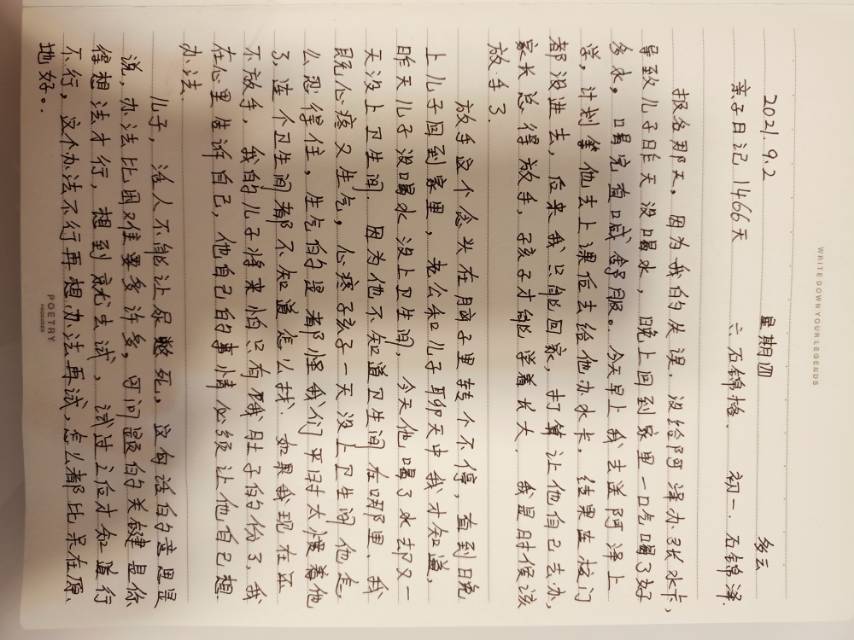 WRITE DOWN YOUR LEGENDS
2021.9.2 星期四 多云
亲子日记 1466天 六.石锦格. 初一.石锦泽.
报名那天,因为我的失误,没给阿泽办张水卡,
导致儿子昨天没喝水,晚上回到家里一口气喝了好
多水。喝完直喊舒服。今天早上我去送阿泽上
学,计划等他去上课后去给他办水卡,结果连校门
都没进去,后来我只能回家,打算让他自己去办,
家长总得放手,孩子才能学着长大,我是时候该
放手了.
放手这个念头在脑子里转个不停,直到晚
上儿子回到家里,老公和儿子聊天中我才知道,
昨天儿子没喝水没上卫生间,今天他喝了水却又一
天没上卫生间.因为他不知道卫生间在哪里.我
既心疼又生气,心疼孩子一天没上卫生间他怎
么忍得住,生气的是都怪我们平时太惯着他
了,连个卫生间都不知道怎么找.如果我现在还
不放手,我的儿子将来怕只有饿肚子的份了,我
在心里告诉自己,他自己的事情必须让他自己想
办法.
儿子,活人不能让尿憋死,这句话的意思是
说,办法比困难要多许多,可问题的关键是你
得想法才行,想到就去试,试过之后才知道行
不行,这个办法不行再想办法再试,怎么都比呆在原
地好。.
POETRY